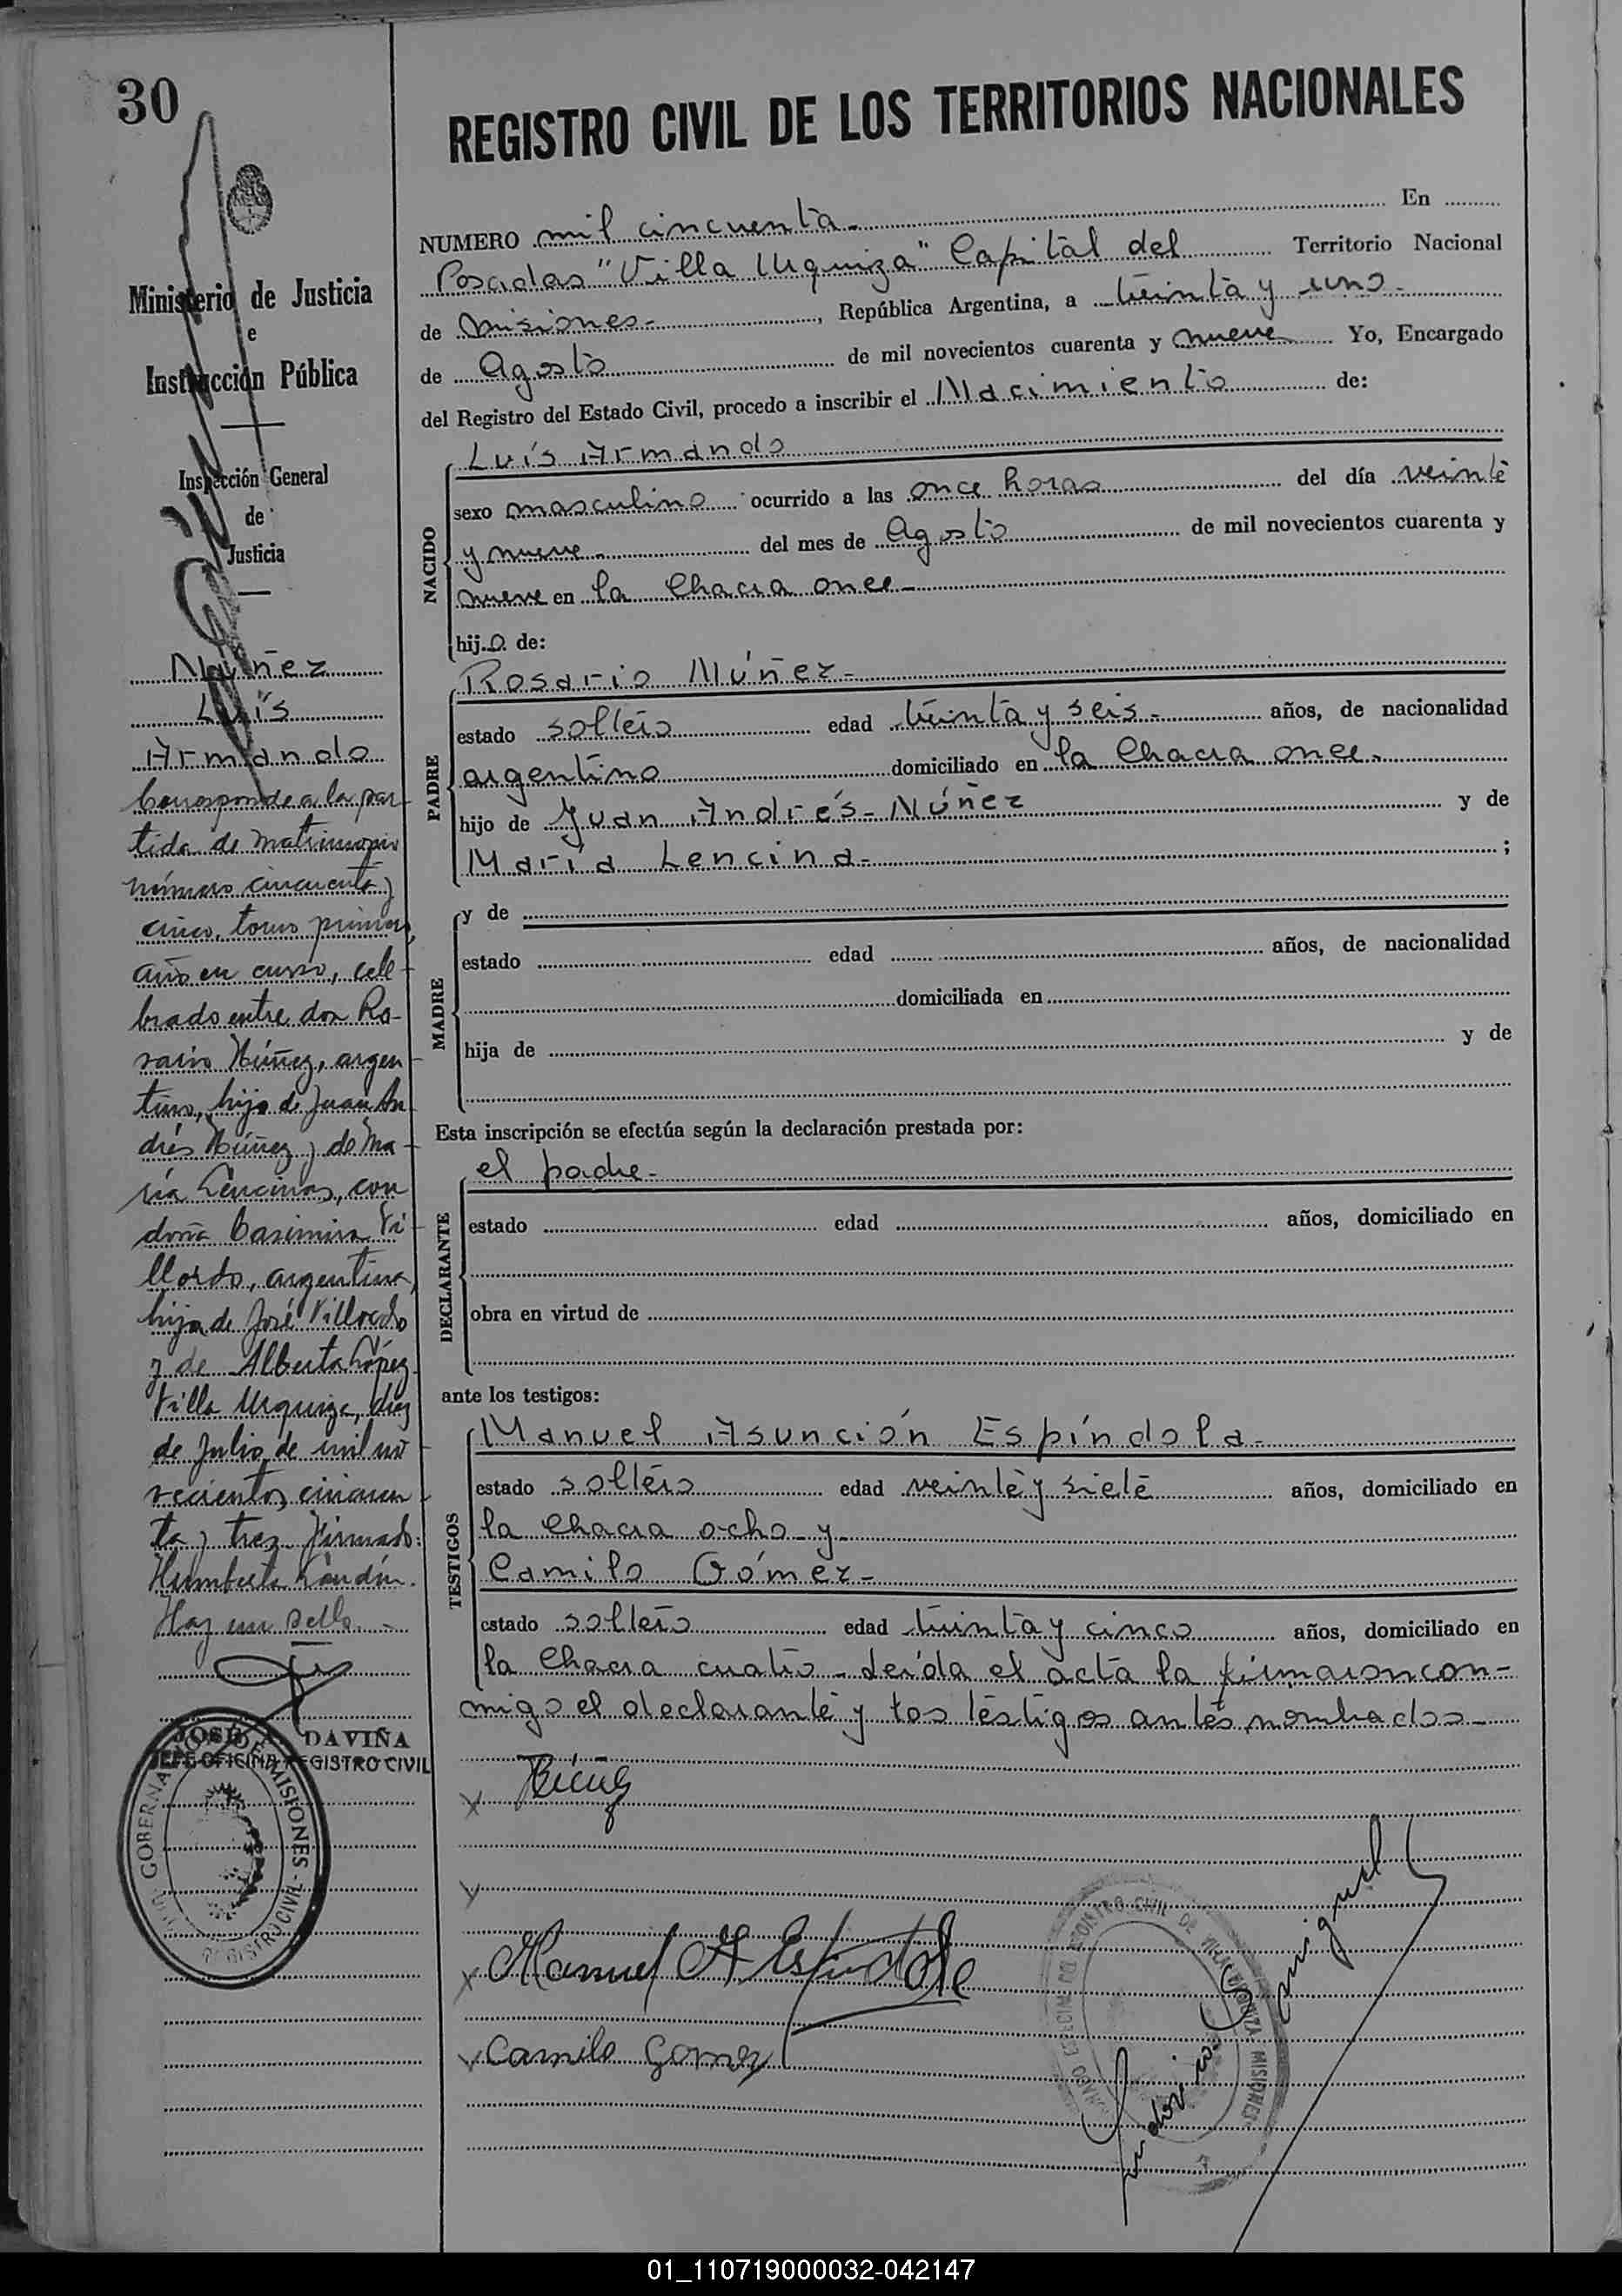 30
Ministerio de Justicia
e
Instrucción Pública
Inspección General
de
Justicia
Núñez
Luís
Armando
Corresponde a la par-
tida de matrimonio
número cincuenta y
cinco, tomo primero,
año en curso, cele-
brado entre don Ro-
sario Núñez, argen-
tino, hijo de Juan An-
drés Núñez y de Ma-
ría Lencinas, con
doña Casimira Vi-
llordo, argentina,
hija de José Villordo
y de Alberta López
Villa Urquiza, diez
de Julio de mil no-
vecientos cincuen-
ta y tres. Firmado:
Humberto
Hay un sello.-
JOSE A. DAVIÑA
JEFE OFICINA REGISTRO CIVIL
GOBERNACION DE MISIONES - REGISTRO CIVIL
REGISTRO CIVIL DE LOS TERRITORIOS NACIONALES
NUMERO mil cincuenta- En
Posadas "Villa Urquiza" Capital del Territorio Nacional
de Misiones- , República Argentina, a treinta y uno-
de Agosto de mil novecientos cuarenta y nueve Yo, Encargado
del Registro del Estado Civil, procedo a inscribir el Nacimiento de:
Luís Armando
NACIDO
sexo masculino ocurrido a las once horas del día veinte
y nueve- del mes de Agosto de mil novecientos cuarenta y
nueve en la Chacra once-
hij.o. de:
Rosario Núñez-
PADRE
estado soltero edad treinta y seis- años, de nacionalidad
argentino domiciliado en la Chacra once-
hijo de Juan Andrés- Núñez y de
María Lencina- ;
MADRE
y de
estado edad años, de nacionalidad
domiciliada en
hija de y de
Esta inscripción se efectúa según la declaración prestada por:
el padre-
DECLARANTE
estado edad años, domiciliado en
obra en virtud de
ante los testigos:
TESTIGOS
Manuel Asunción Espíndola-
estado soltero edad veinte y siete años, domiciliado en
la Chacra ocho y
Camilo Gómez-
estado soltero edad treinta y cinco años, domiciliado en
la Chacra cuatro- leída el acta la firmaron con-
migo el declarante y los testigos antes nombrados-
x Núñez
x
x Manuel A Espindola
x Camilo Gomez
REGISTRO CIVIL DE VILLA URQUIZA MISIONES
Ludovico Sanignuel
01_110719000032-042147